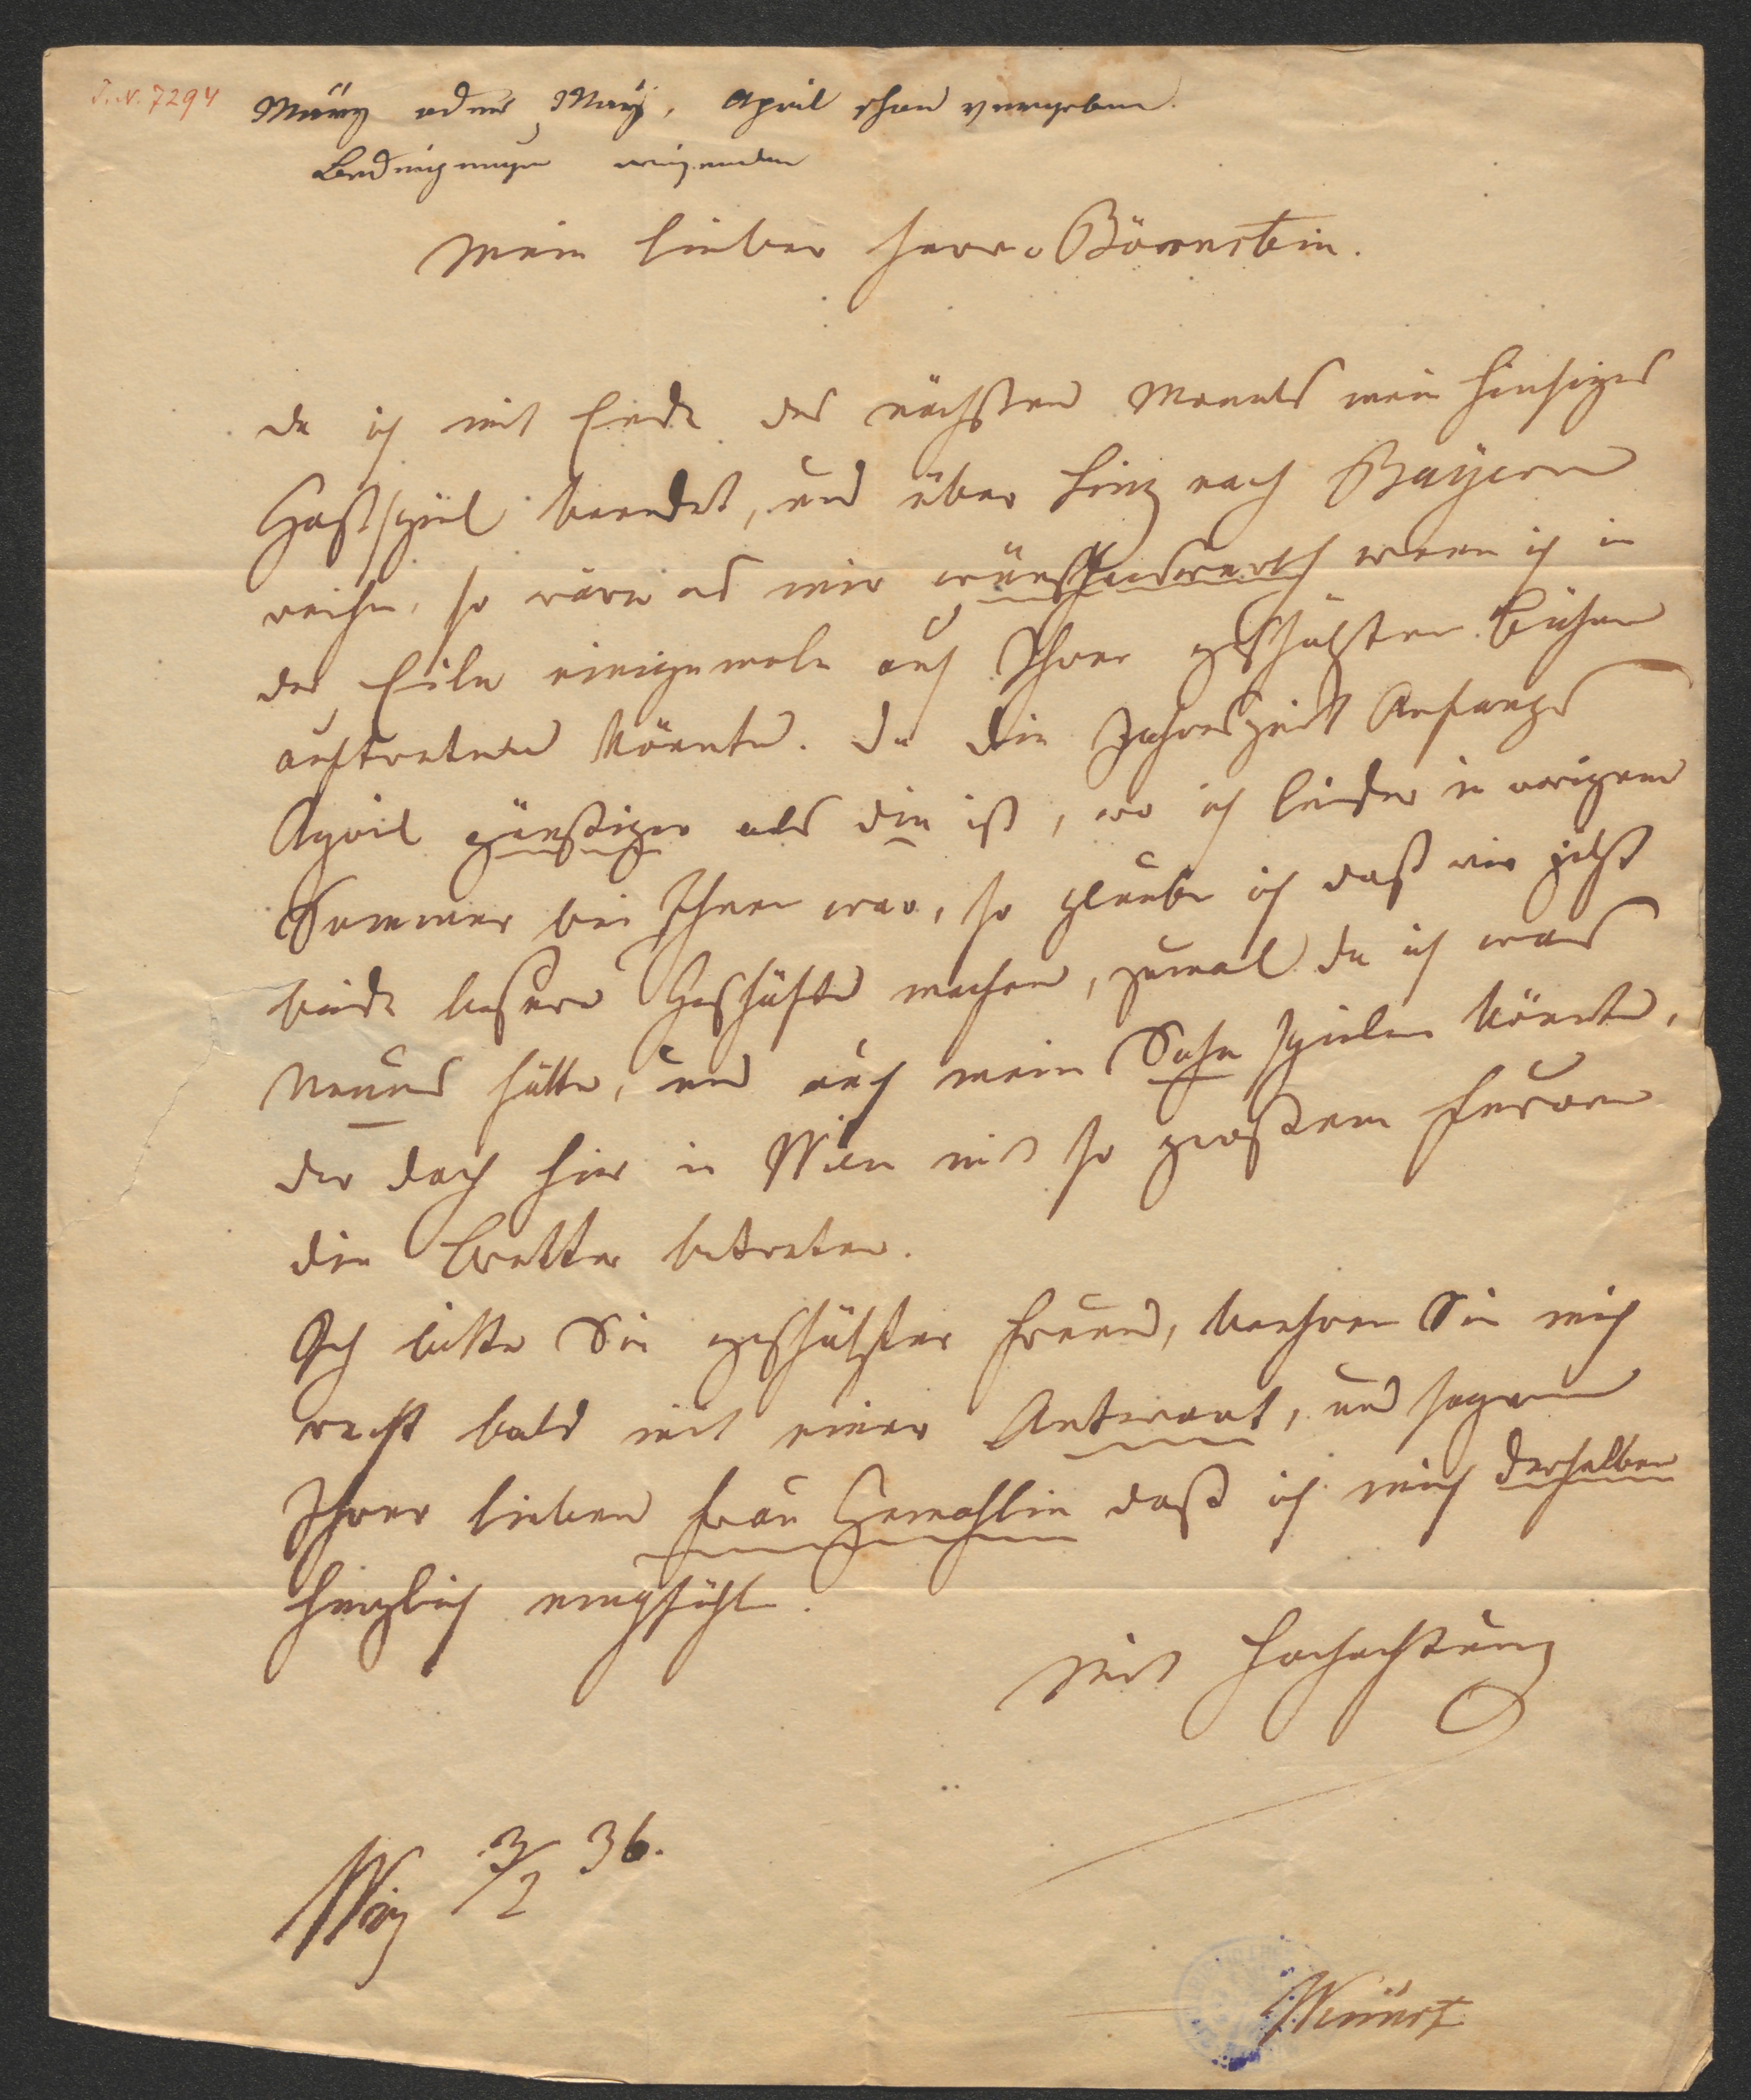 I. N. 7294
März oder May, April schon vergeben.
Bedingungen
Mein lieber Herr v Börnstein.
da ich mit Ende des nächsten Monats mein hiesiges
Gastspiel beendet, und über Linz nach Bayern
reise, so wäre es mir wünschenswerth wenn ich in
der Eile einigemale auf Ihrer geschätzten Bühne
auftreten könnte. Da die Jahreszeit Anfangs
April günstiger als die ist, wo ich leider in vorigem
Sommer bei Ihnen war, so glaube ich daß wir jetzt
beide bessere Geschäfte machen, zumal da ich was
Neues hätte, und auch mein Sohn spielen könnte,
der doch hier in Wien mit so großem Furore
die Bretter betreten.
Ich bitte Sie geschätzter Freund, beehren Sie mich
recht bald mit einer Antwort, und sagen
Ihrer lieben Frau Gemahlin daß ich mich derselben
herzlich empfehle.
Mit Hochachtung
Wien 3/2 36.